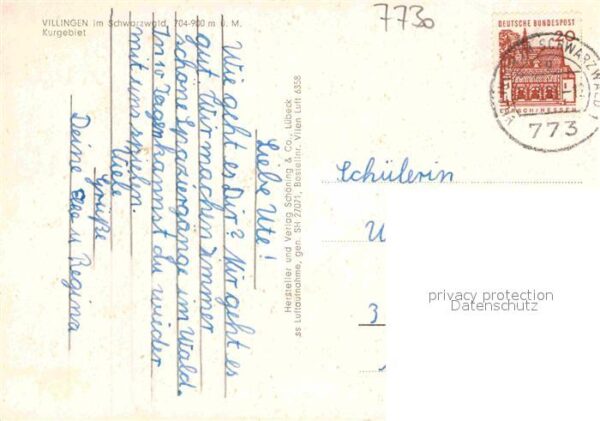 VILLINGEN im Schwarzwald, 704-900 m ü. M.
Kurgebiet
7730
DEUTSCHE BUNDESPOST
20
SCHWARZWALD 1
773
Liebe Ute!
Wie geht es Dir? Mir geht es
gut. Wir machen immer
schöne Spaziergänge im Wald.
In 10 Tagen kannst du wieder
mit mir spielen.
Viele
Grüße
Deine Regina
Hersteller und Verlag Schöning & Co., Lübeck
ss Luftaufnahme, gen. SH 27071, Bestellnr. Vilen Luft 6358
Schülerin
U
3
privacy protection
Datenschutz